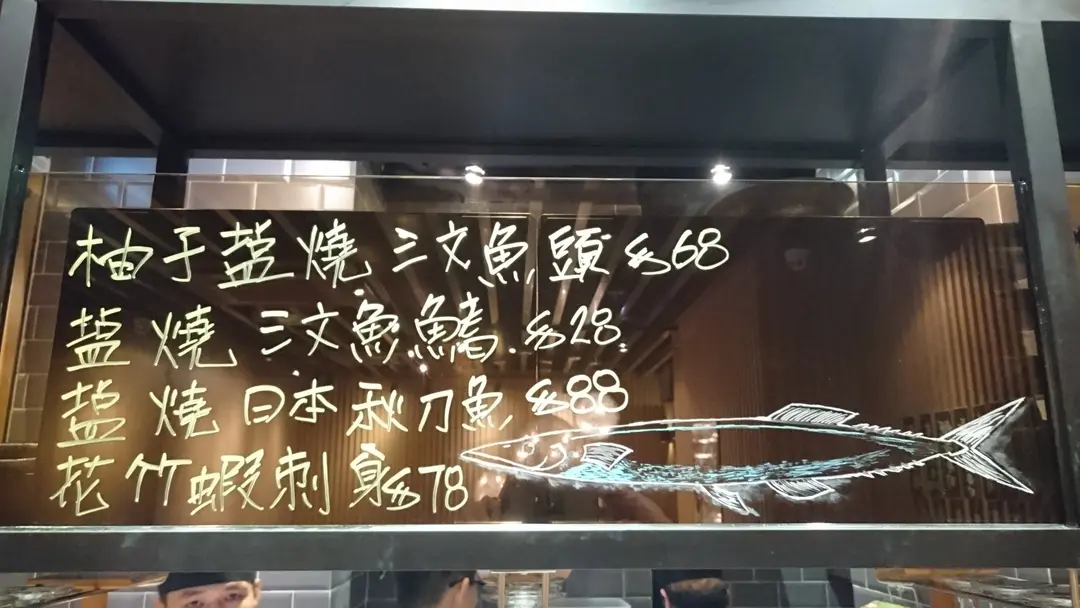 柚子盐燒三文魚頭 $68
盐燒三文魚鰭 $28
盐燒日本秋刀魚 $88
花竹蝦刺身 $78